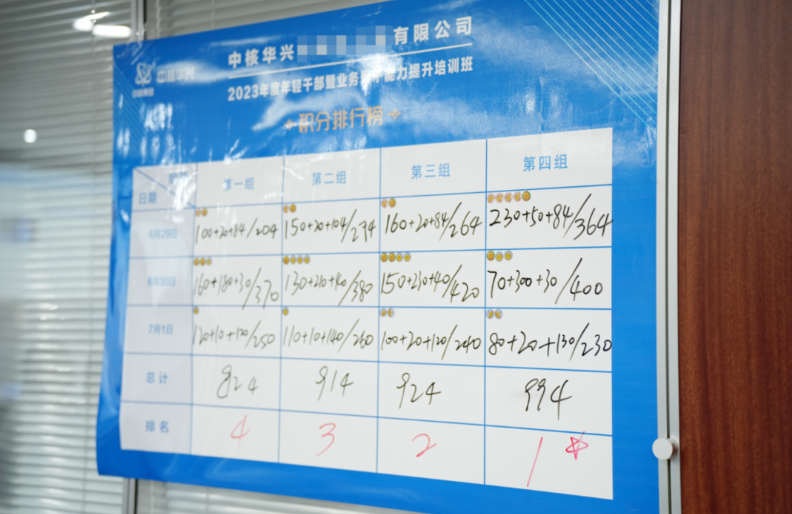 中核华兴
中核华兴 有限公司
2023年度年轻干部暨业务 能力提升培训班
积分排行榜
日期 第一组 第二组 第三组 第四组
6月29日 100+20+84/204 150+20+104/274 160+20+84/264 230+50+84/364
6月30日 160+180+30/370 130+210+40/380 150+230+40/420 70+300+30/400
7月1日 120+10+120/250 110+10+140/260 100+20+120/240 80+20+130/230
总计 824 914 924 994
排名 4 3 2 1